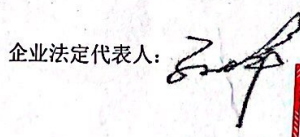 企业法定代表人：